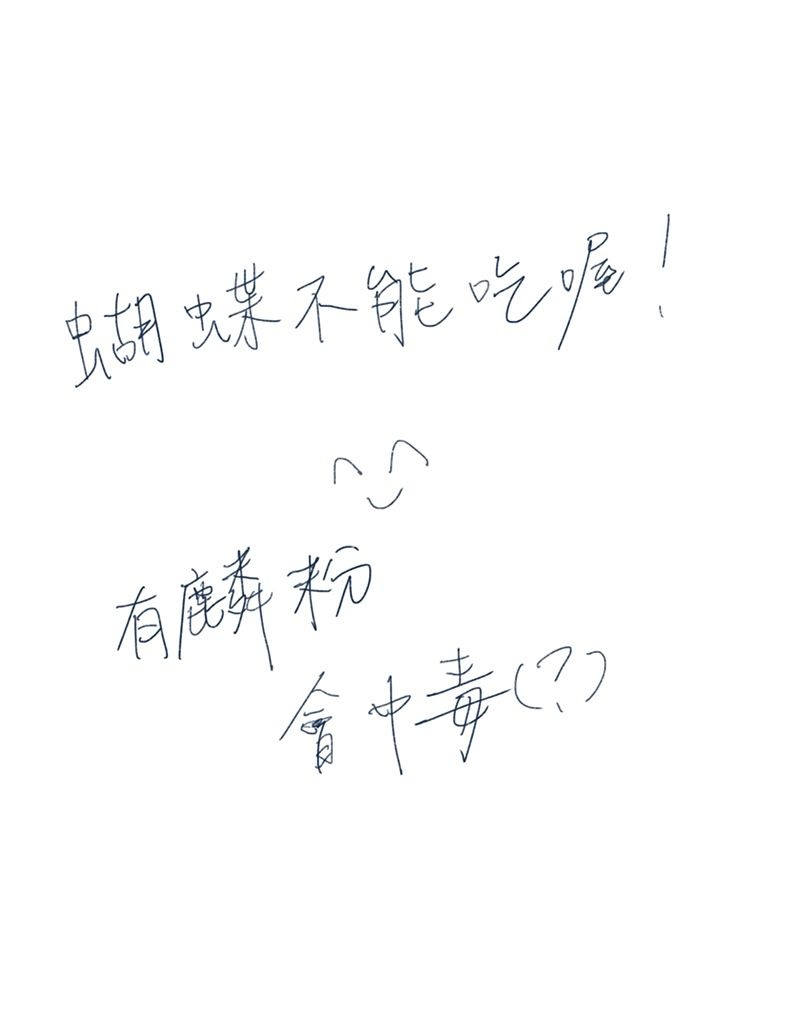 蝴蝶不能吃喔！
有麟粉
會中毒(?)